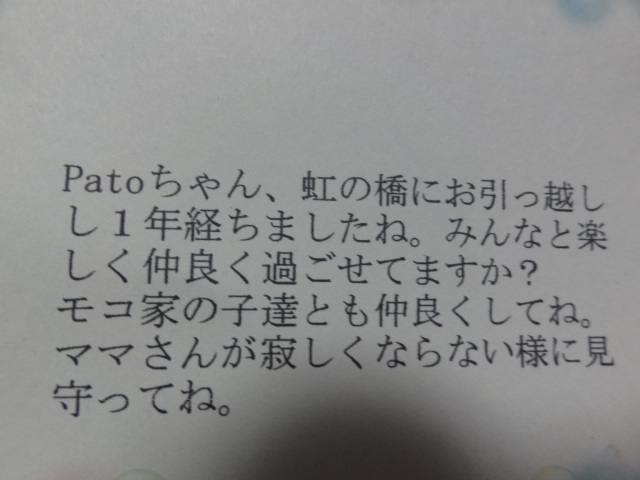 Patoちゃん、虹の橋にお引っ越し
し１年経ちましたね。みんなと楽
しく仲良く過ごせてますか？
モコ家の子達とも仲良くしてね。
ママさんが寂しくならない様に見
守ってね。